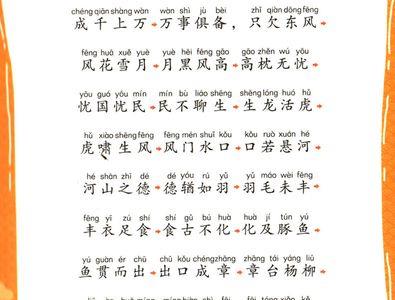 chéng qiān shàng wàn wàn shì jù bèi zhǐ qiàn dōng fēng
成千上万→万事俱备,只欠东风→
fēng huā xuě yuè yuè hēi fēng gāo gāo zhěn wú yōu
风花雪月→月黑风高→高枕无忧→
yōu guó yōu mín mín bù liáo shēng shēng lóng huó hǔ
忧国忧民→民不聊生→生龙活虎→
hǔ xiào shēng fēng fēng mén shuǐ kǒu kǒu ruò xuán hé
虎啸生风→风门水口→口若悬河→
hé shān zhī dé dé yóu rú yǔ yǔ máo wèi fēng
河山之德→德犹如羽→羽毛未丰→
fēng yī zú shí shí gǔ bú huà huà jí tún yú
丰衣足食→食古不化→化及豚鱼→
yú guàn ér chū chū kǒu chéng zhāng zhāng tái yáng liǔ
鱼贯而出→出口成章→章台杨柳→